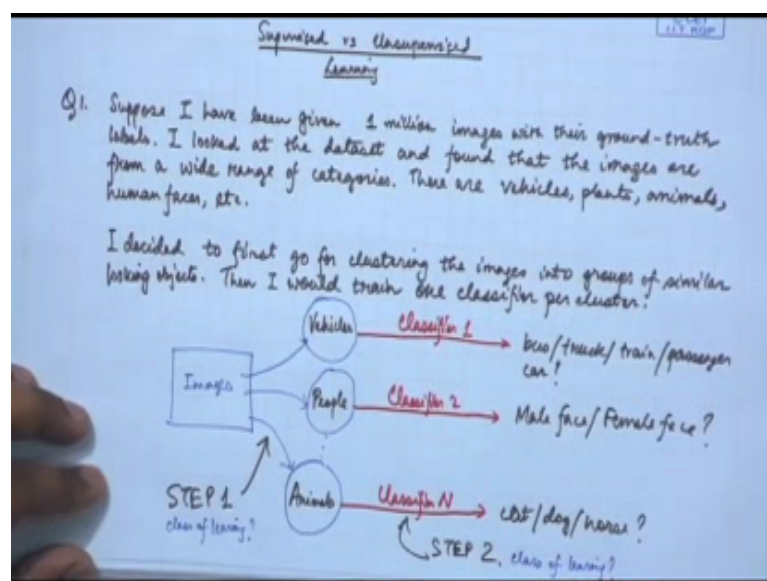 Supervised vs Unsupervised
Learning
Q1. Suppose I have been given 1 million images with their ground-truth
labels. I looked at the dataset and found that the images are
from a wide range of categories. There are vehicles, plants, animals,
human faces, etc.
I decided to first go for clustering the images into groups of similar
looking objects. Then I would train one classifier per cluster.
Vehicles
Classifier 1
bus/truck/train/passenger
car?
Images
People
Classifier 2
Male face/Female face?
Animals
Classifier N
cat/dog/horse?
STEP 1
class of learning?
STEP 2. class of learning?